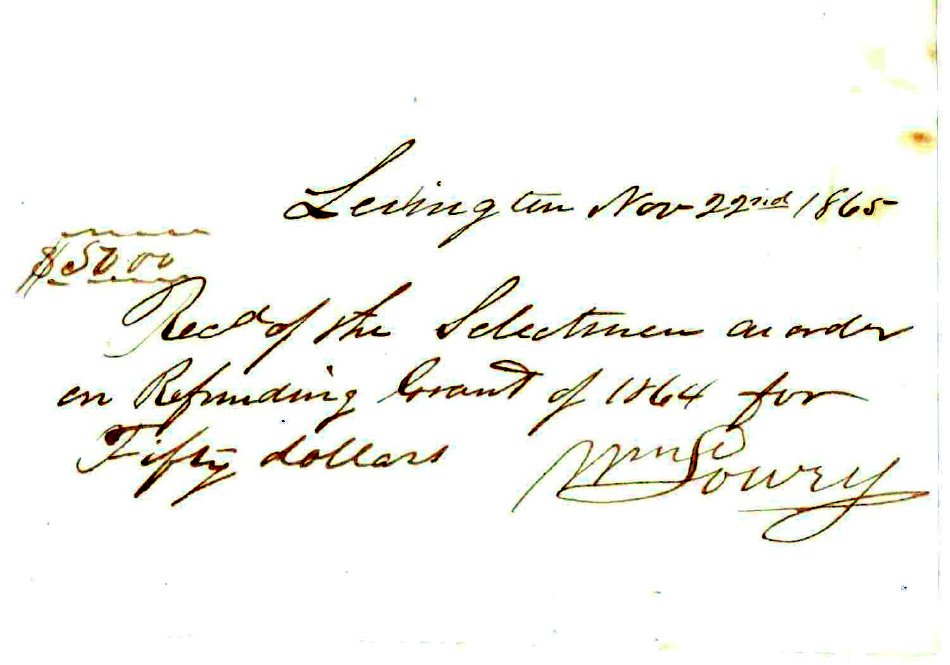 Lexington Nov 22nd 1865
$50.00
Recd of the Selectmen an order
on Refunding Grant of 1864 for
Fifty dollars Wm Lowry